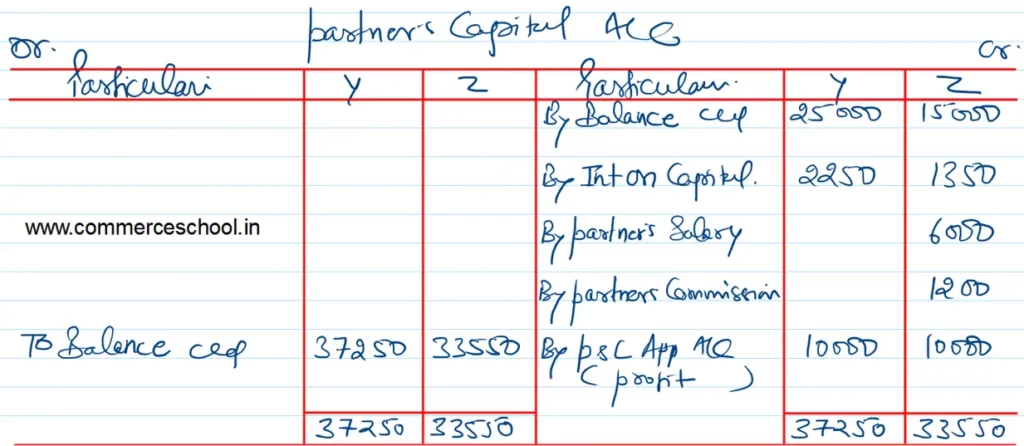 partner's Capital A/C
Dr. Cr.
Particulars Y Z Particulars Y Z
By Balance c/f 25000 15000
By Int on Capital. 2250 1350
www.commerceschool.in
By partner's Salary 6000
By partners Commission 1200
To Balance c/f 37250 33550 By P&L App A/C 10000 10000
( profit )
37250 33550 37250 33550